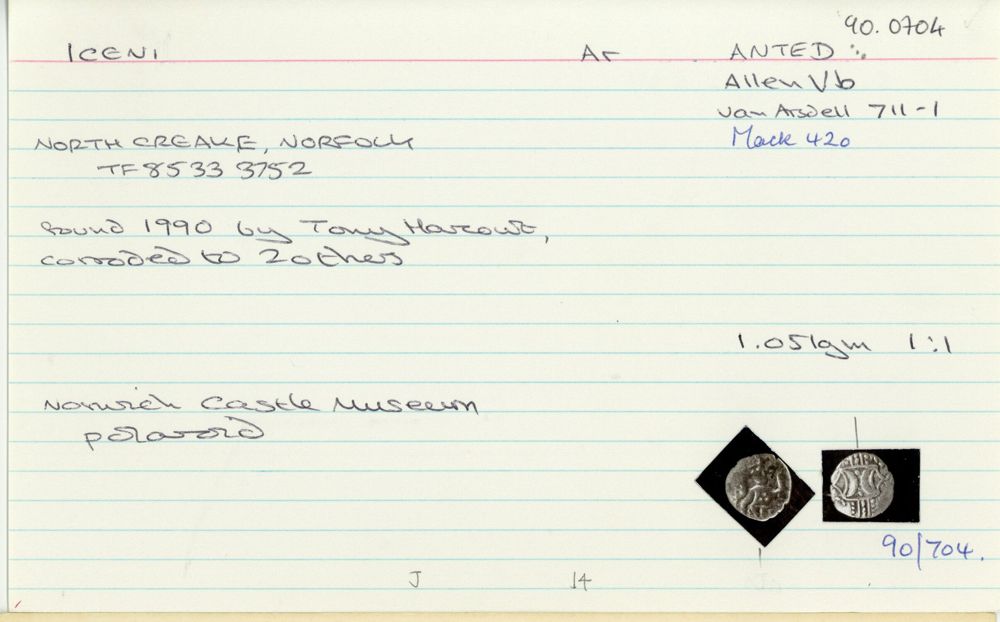 90.0704
ICENI Ar ANTED ∴
Allen Vb
van Arsdell 711-1
Mack 420
NORTH CREAKE, NORFOLK
TF 8533 3752
found 1990 by Tony
corroded to 2 others
1.051gm 1:1
Norwich Castle Museum
polaroid
90/704.
J 14